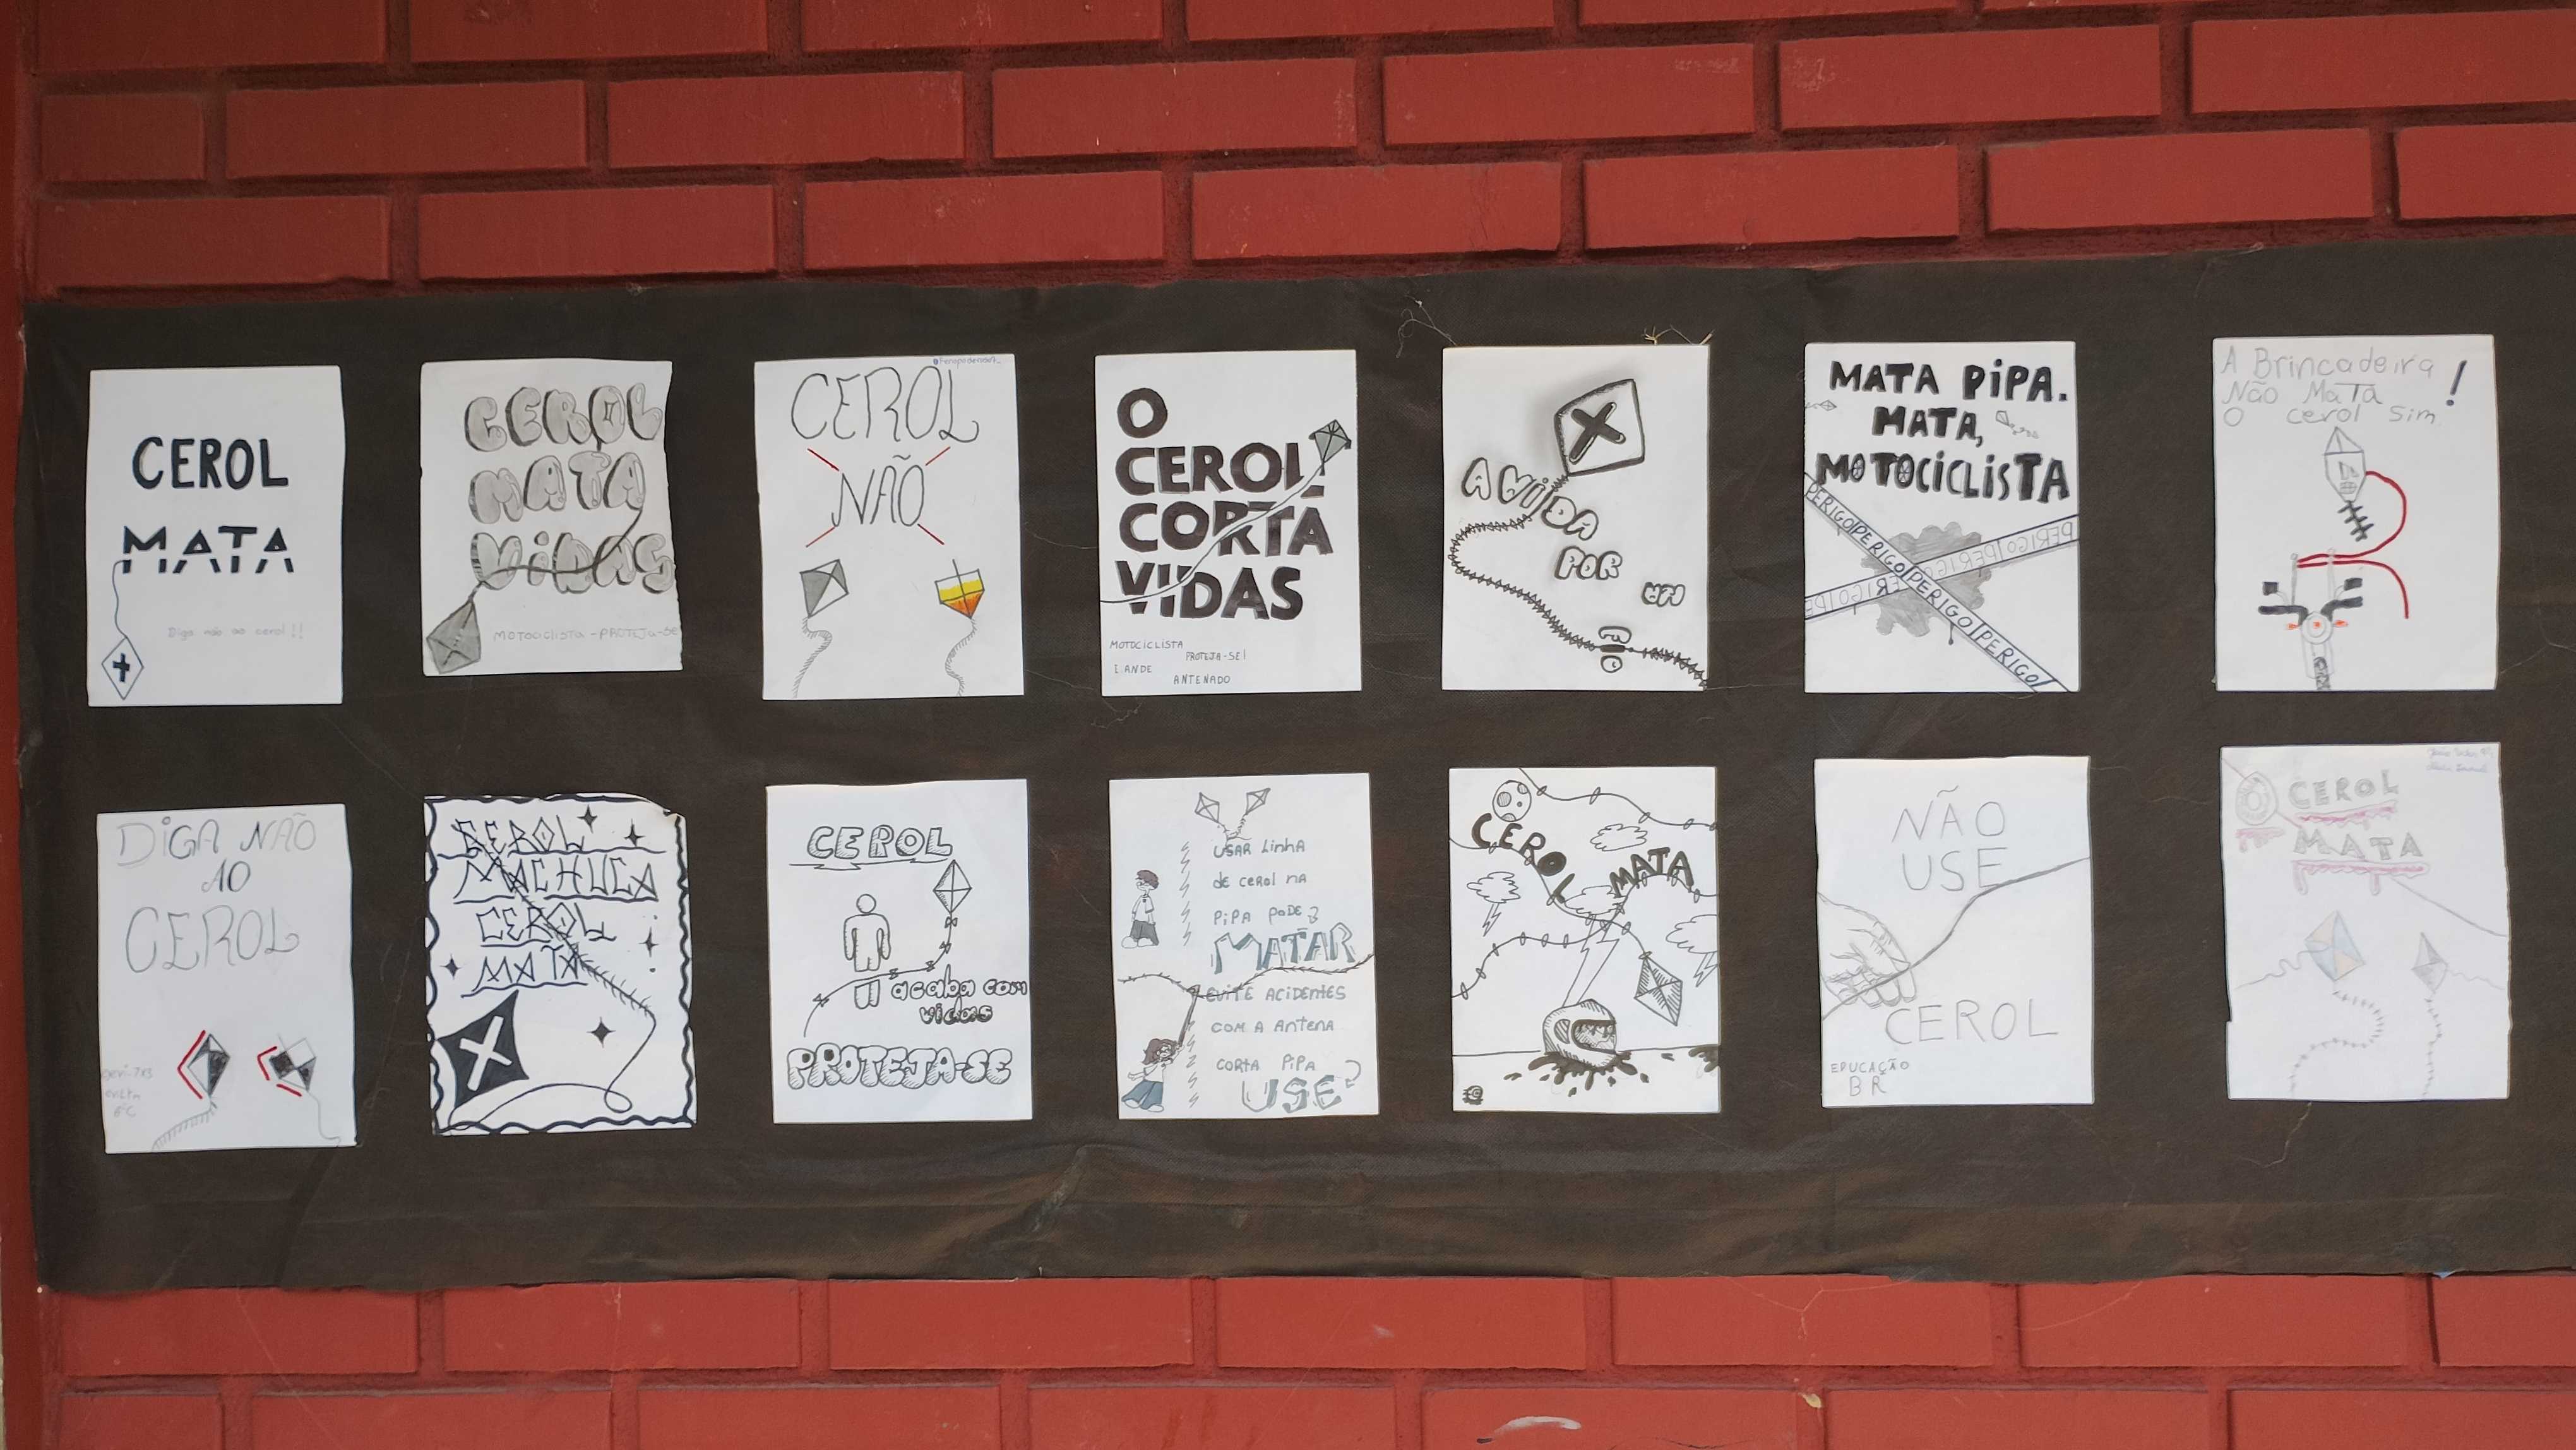 CEROL
MATA
Diga não ao cerol!!
CEROL
MATA
VIDAS
MOTOCICLISTA-PROTEJA-SE
CEROL
NÃO
O
CEROL
CORTA
VIDAS
MOTOCICLISTA
PROTEJA-SE!
E ANDE
ANTENADO
A VIDA
POR
UM
FIO
MATA PIPA.
MATA,
MOTOCICLISTA
PERIGO PERIGO PERIGO PERIGO PERIGO
PERIGO PERIGO PERIGO PERIGO
A Brincadeira
Não Mata !
O cerol sim
DIGA NÃO
AO
CEROL
CEROL
MACHUCA
CEROL
MATA
CEROL
acaba com
vidas
PROTEJA-SE
USAR LINHA
de cerol NA
PIPA PODE
MATAR
EVITE ACIDENTES
COM A ANTENA
CORTA PIPA
USE
CEROL MATA
NÃO
USE
CEROL
EDUCAÇÃO
BR
CEROL
MATA